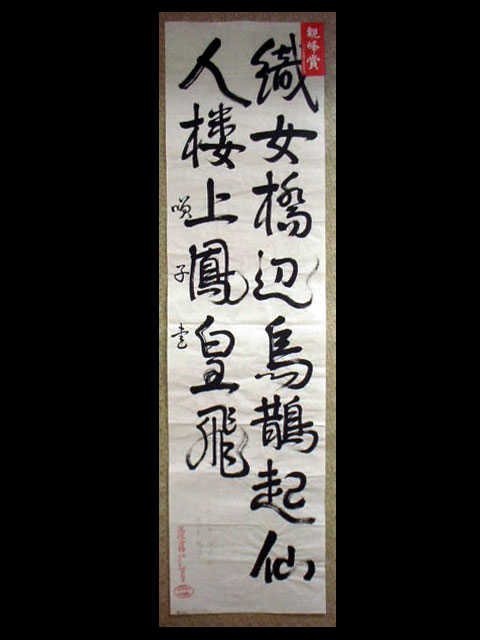 親峰賞
織女橋辺烏鵲起仙
人楼上鳳皇飛
咲子書